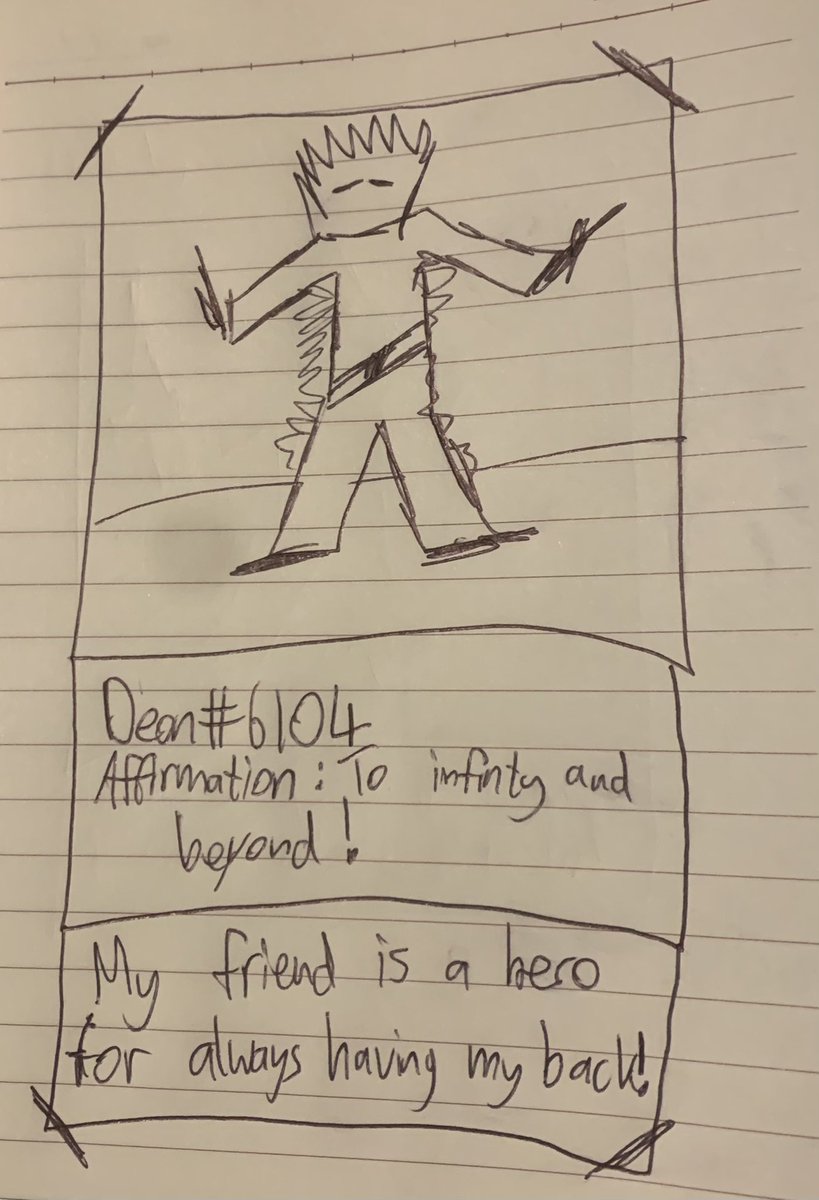 Dean#6104
Affirmation: To infinty and
beyond!
My friend is a hero
for always having my back!